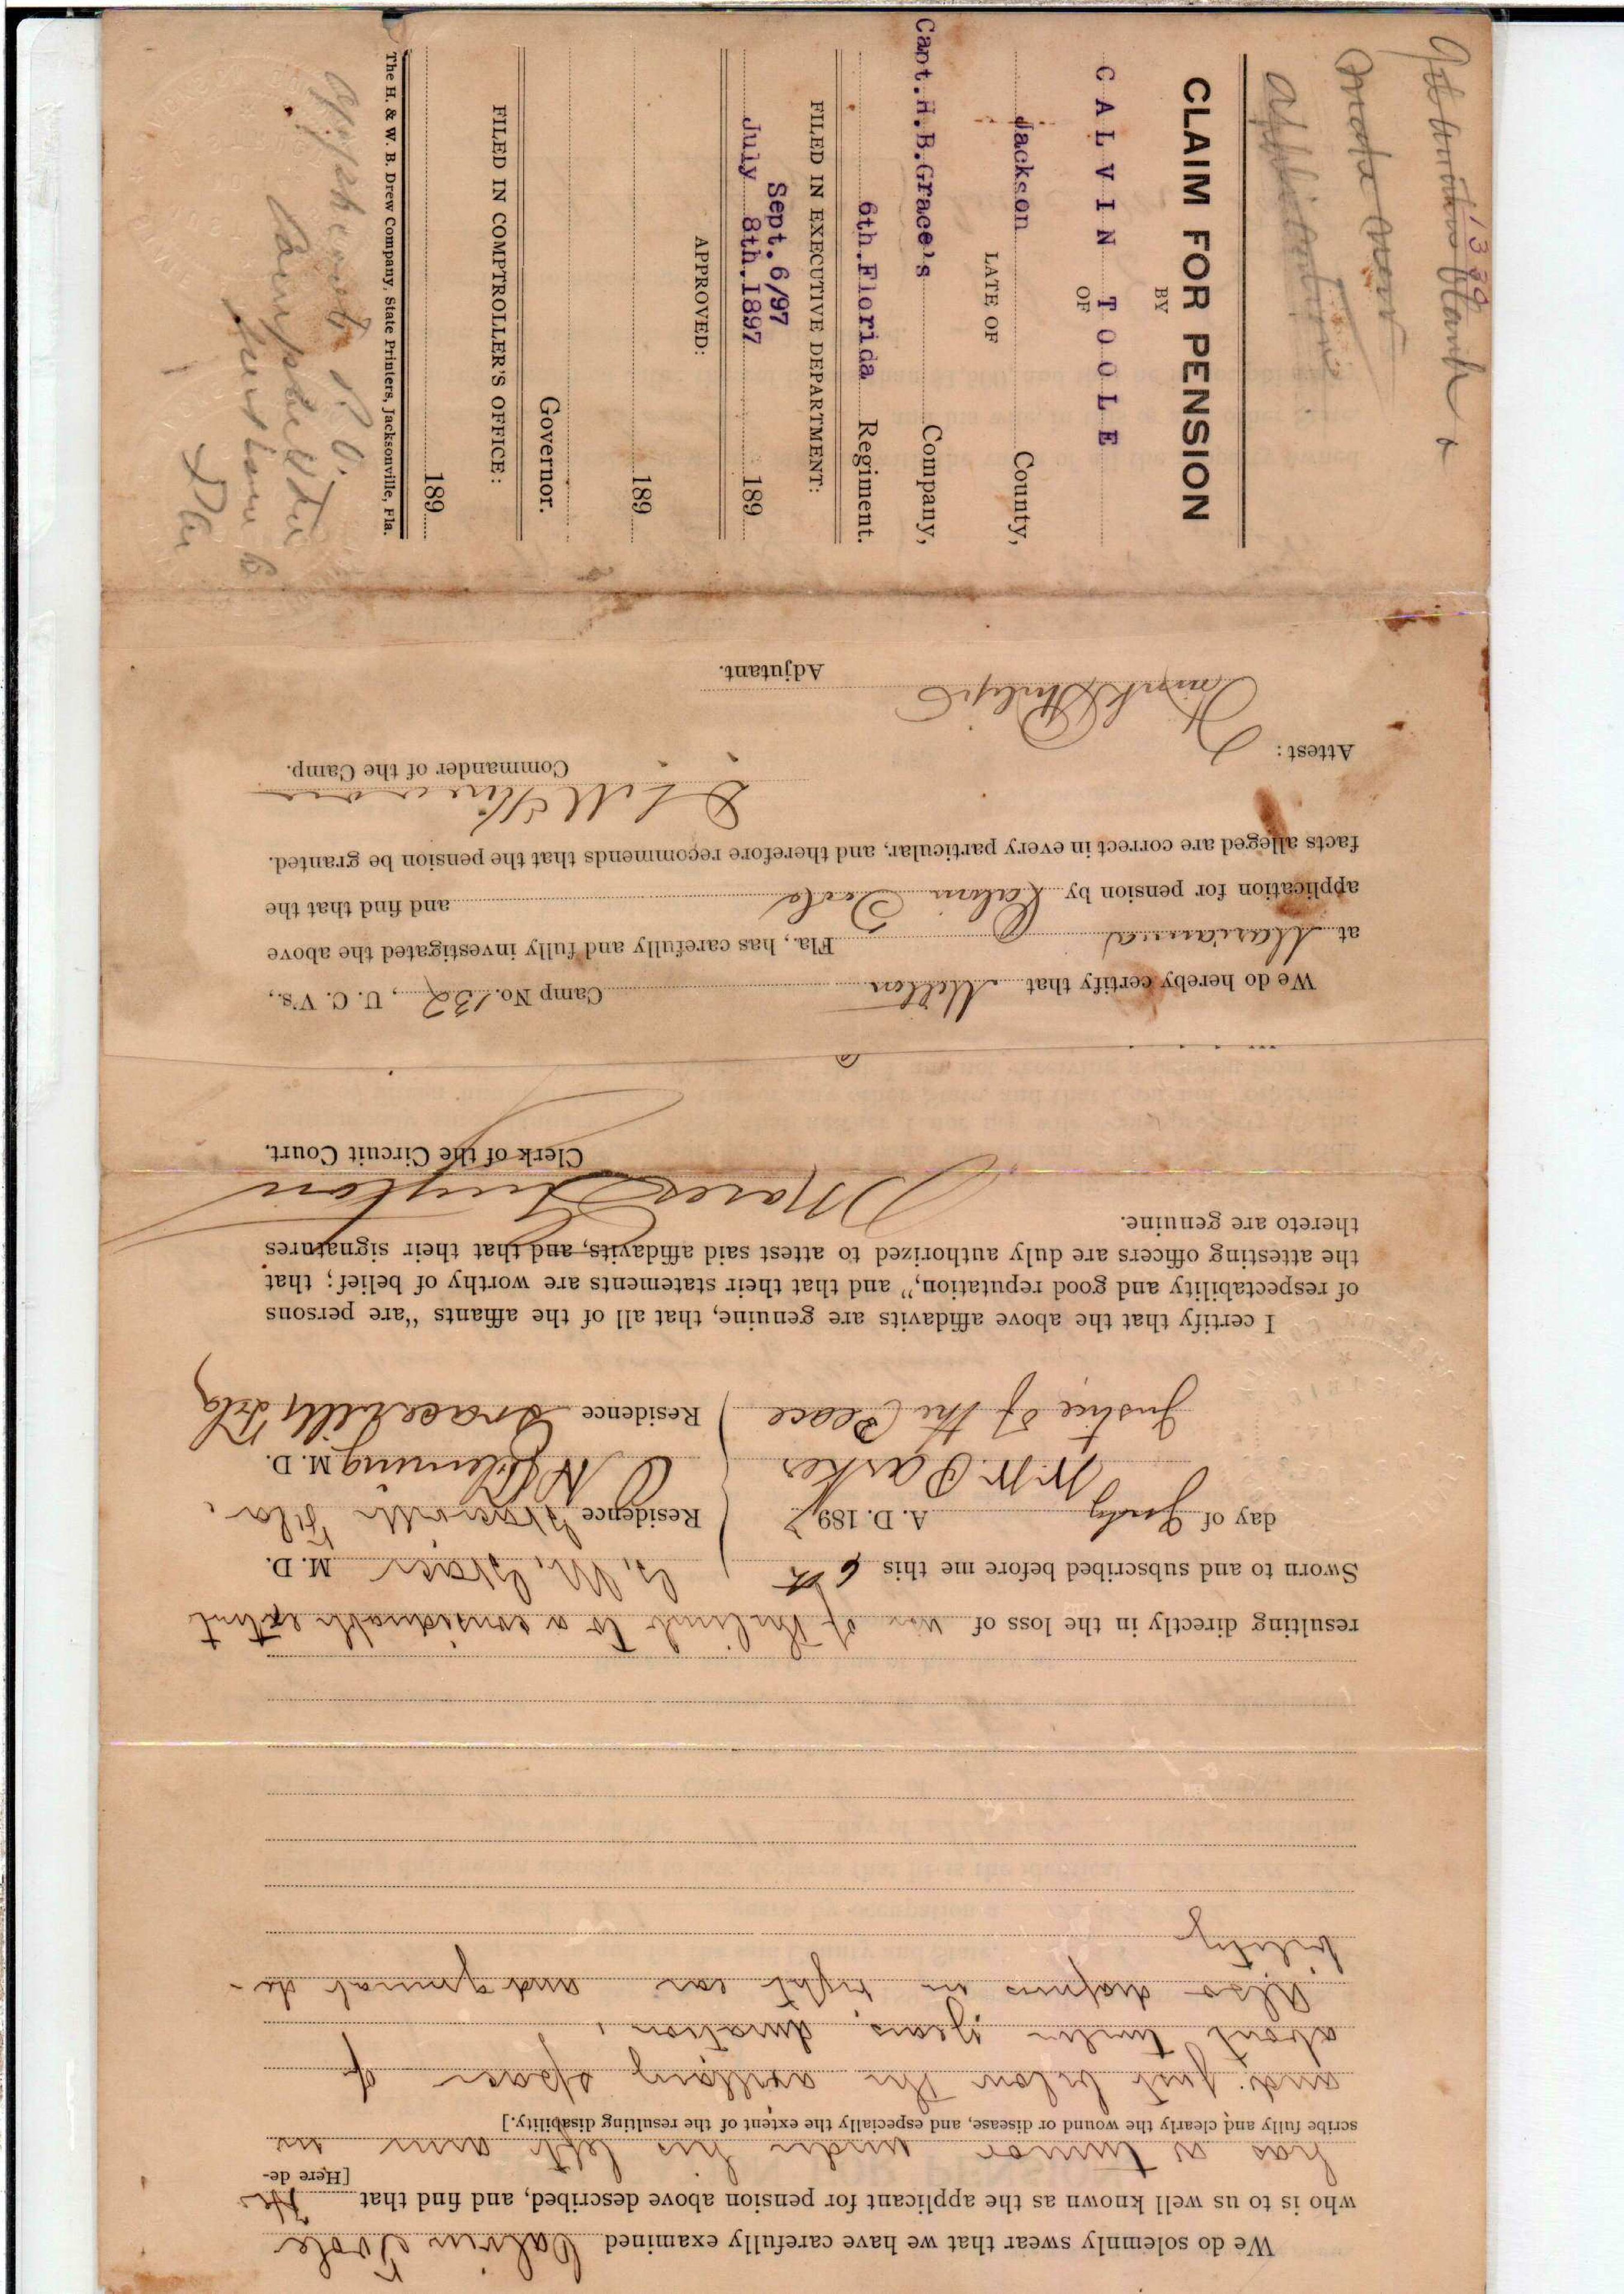 We do solemnly swear that we have carefully examined Calvin Toole
who is to us well known as the applicant for pension above described, and find that He [Here de-
has a tumor under his left arm in
scribe fully and clearly the wound or disease, and especially the extent of the resulting disability.]
and just below the axillary space of
about twelve years duration,
Also deafness in right ear and general de-
bility
resulting directly in the loss of use of the limb to a considerable extent
Sworn to and subscribed before me this 6th
day of July A. D. 1897
W. W. Parker
Justice of the Peace
M. D.
Residence Graceville Fla.
M. D.
Residence Graceville Fla
I certify that the above affidavits are genuine, that all of the affiants "are persons
of respectability and good reputation," and that their statements are worthy of belief; that
the attesting officers are duly authorized to attest said affidavits, and that their signatures
thereto are genuine.
Clerk of the Circuit Court.
We do hereby certify that Milton Camp No. 132, U. C. V's.,
at Marianna Fla., has carefully and fully investigated the above
application for pension by Calvin Toole and find that the
facts alleged are correct in every particular, and therefore recommends that the pension be granted.
Commander of the Camp.
Attest:
Frank Philips
Adjutant.
1339
CLAIM FOR PENSION
BY
CALVIN TOOLE
OF
Jackson County,
LATE OF
Capt.H.B.Grace's Company,
6th.Florida Regiment.
FILED IN EXECUTIVE DEPARTMENT:
Sept.6/97
July 8th.1897 189
APPROVED:
189
Governor.
FILED IN COMPTROLLER'S OFFICE:
189
The H. & W. B. Drew Company, State Printers, Jacksonville, Fla.